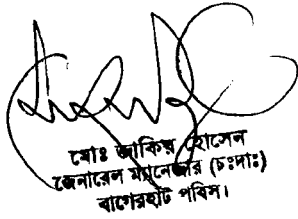 মোঃ জাকির হোসেন
জেনারেল ম্যানেজার (চঃদাঃ)
বাগেরহাট পবিস।